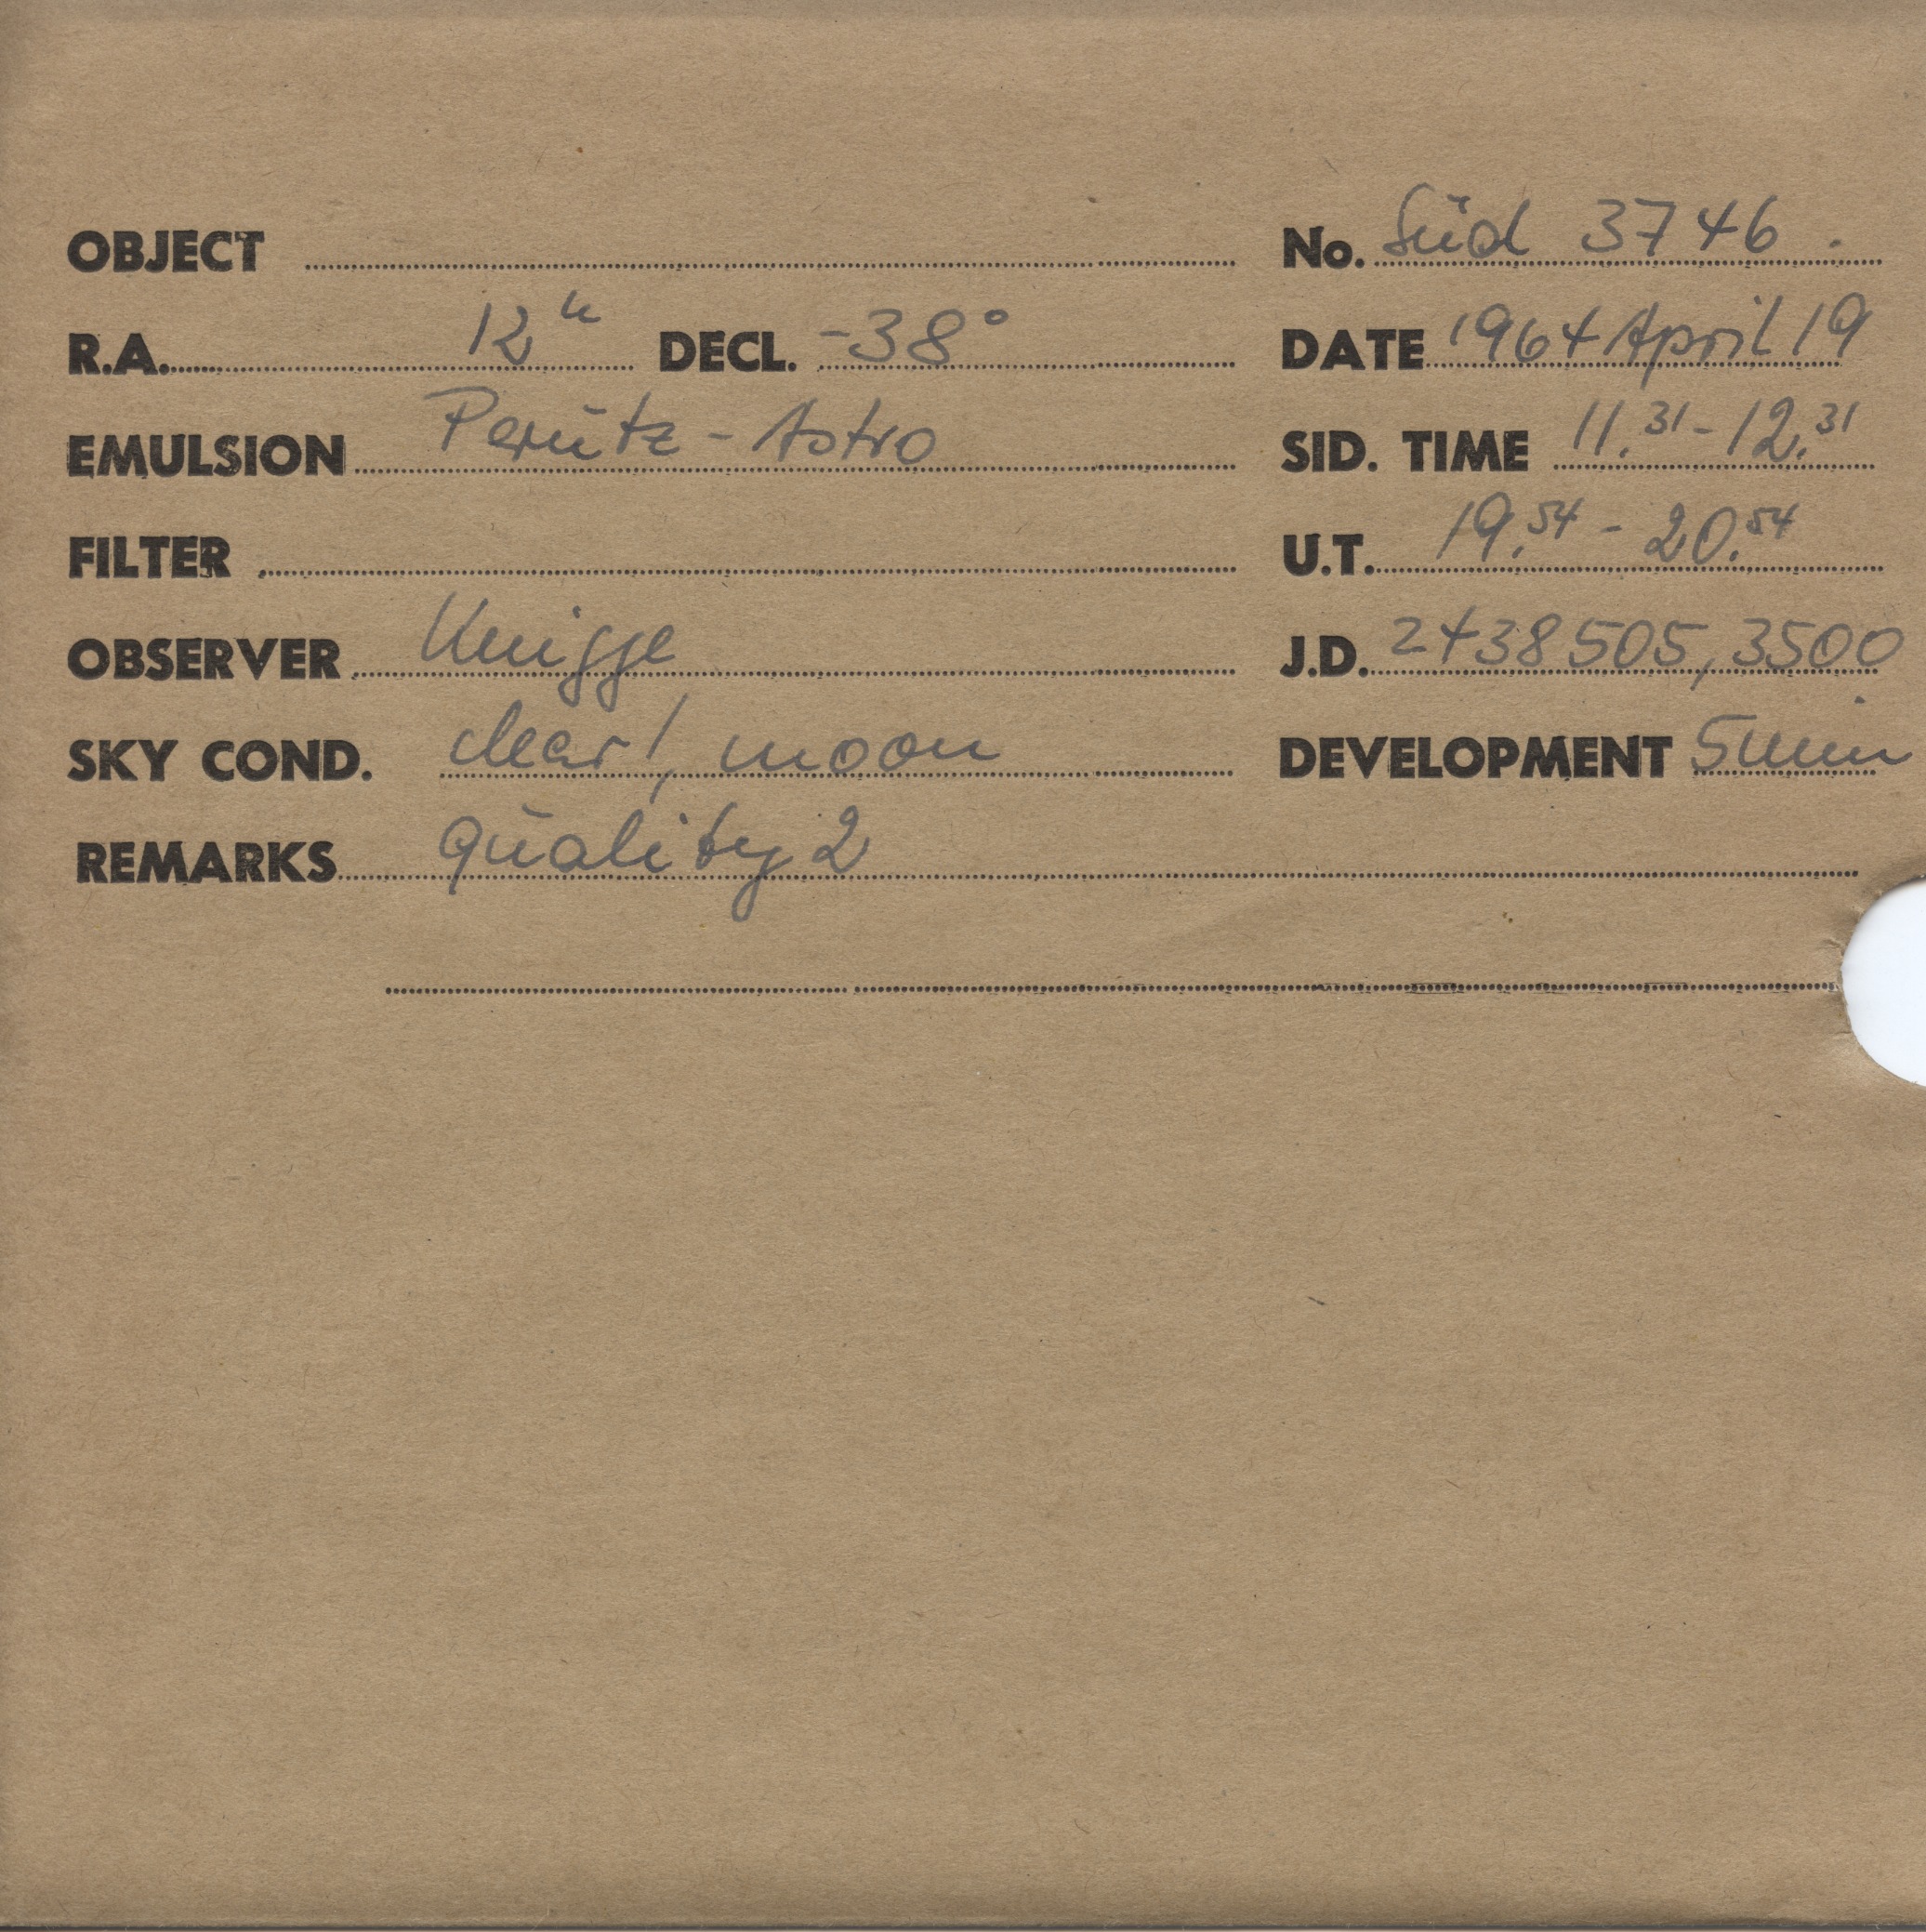 OBJECT No. Süd 3746.
R.A. 12h DECL. -38° DATE 1964 April 19
EMULSION Perutz - Astro SID. TIME 11.31 - 12.31
FILTER U.T. 19.54 - 20.54
OBSERVER Knigge J.D. 2438505,3500
SKY COND. clear!, moon DEVELOPMENT 5 min
REMARKS quality 2